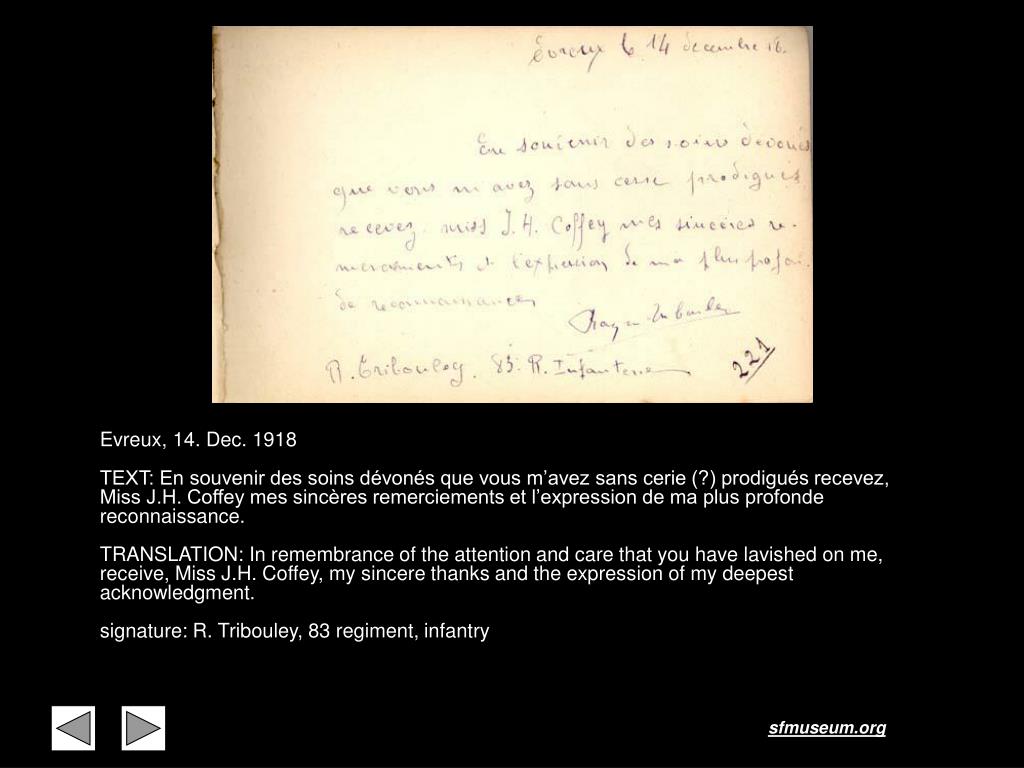 Evreux le 14 decembre 18.
En souvenir des soins dévoués
que vous m'avez sans cesse prodigués
recevez miss J.H. Coffey mes sincères re-
merciements et l'expression de ma plus profon-
de reconnaissance
R. Tribouley. 83. R. Infanterie
221
Evreux, 14. Dec. 1918
TEXT: En souvenir des soins dévonés que vous m'avez sans cerie (?) prodigués recevez,
Miss J.H. Coffey mes sincères remerciements et l'expression de ma plus profonde
reconnaissance.
TRANSLATION: In remembrance of the attention and care that you have lavished on me,
receive, Miss J.H. Coffey, my sincere thanks and the expression of my deepest
acknowledgment.
signature: R. Tribouley, 83 regiment, infantry
sfmuseum.org